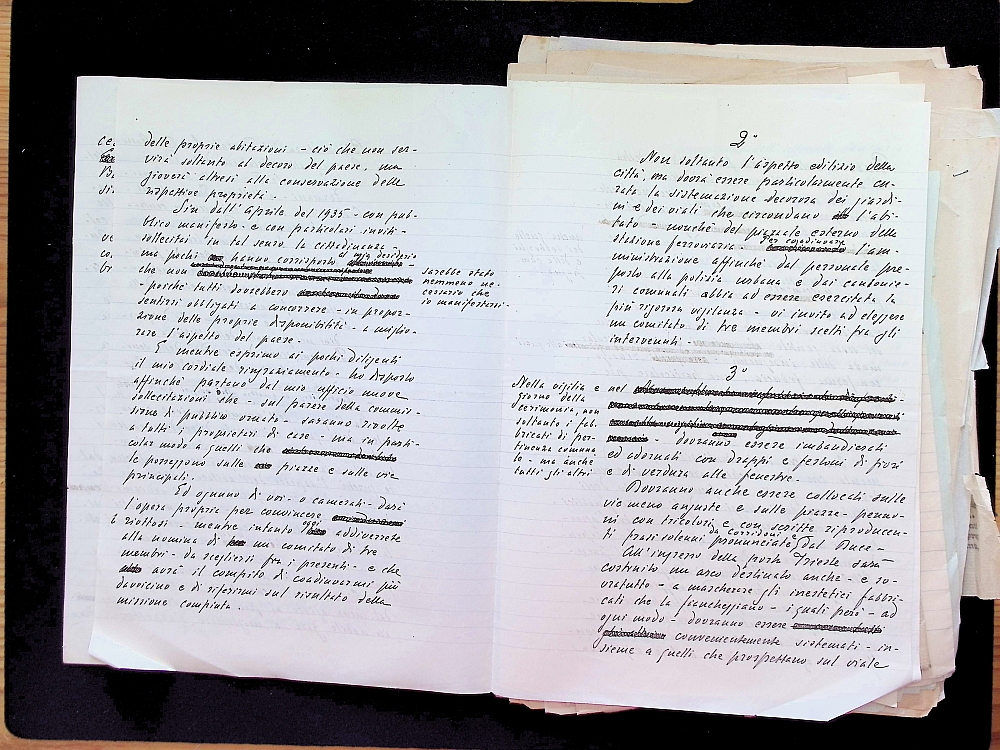 delle proprie abitazioni - ciò che non ser-
virà soltanto al decoro del paese, ma
gioverà altresì alla conservazione delle
rispettive proprietà.
Sin dall'Aprile del 1935 - con pub-
blico manifesto - e con particolari inviti -
sollecitai in tal senso la cittadinanza -
ma pochi hanno corrisposto al mio desiderio
che non
sarebbe stato
nemmeno ne-
cessario che
io manifestassi.
- poichè tutti dovrebbero
sentirsi obbligati a concorrere - in propor-
zione delle proprie disponibilità - a miglio-
rare l'aspetto del paese.
E mentre esprimo ai pochi diligenti
il mio cordiale ringraziamento - ho disposto
affinchè partano dal mio ufficio nuove
sollecitazioni che - sul parere della commis-
sione di pubblico ornato - saranno rivolte
a tutti i proprietari di case - ma in parti-
colar modo a quelli che
le posseggono sulle piazze e sulle vie
principali.
Ed ognuno di voi - o camerati - darà
l'opera propria per convincere
i riottosi - mentre intanto oggi addiverrete
alla nomina di un comitato di tre
membri - da scegliersi fra i presenti - e che
avrà il compito di coadiuvarmi più
davvicino e di riferirmi sul risultato della
missione compiuta.
ce.
B.
si.
ve
co.
br
2°
Non soltanto l'aspetto edilizio della
città, ma dovrà essere particolarmente cu-
rata la sistemazione decorosa dei giardi-
ni e dei viali che circondano l'abi-
tato - nonchè del piazzale esterno della
stazione ferroviaria - Per coadiuvare l'am
ministrazione affinchè dal personale pre-
posto alla polizia urbana e dai cantonie-
ri comunali abbia ad essere esercitata la
più rigorosa vigilanza - vi invito ad eleggere
un comitato di tre membri scelti fra gli
intervenuti.
3°
Nella vigilia e nel
giorno della
cerimonia, non
soltanto i fab-
bricati di per-
tinenza comuna
le - ma anche
tutti gli altri
- dovranno essere imbandierati
ed adornati con drappi e festoni di fiori
e di verdura alle finestre.
Dovranno anche essere collocati sulle
vie meno anguste e sulle piazze - penno-
ni con tricolori e con scritte riproducen-
ti frasi solenni pronunciate dal Duce -
All'ingresso della porta Trieste sarà
costruito un arco destinato anche - e so-
vratutto - a mascherare gli inestetici fabbri-
cati che la fiancheggiano - i quali però - ad
ogni modo - dovranno essere
convenientemente sistemati - in-
sieme a quelli che prospettano sul viale